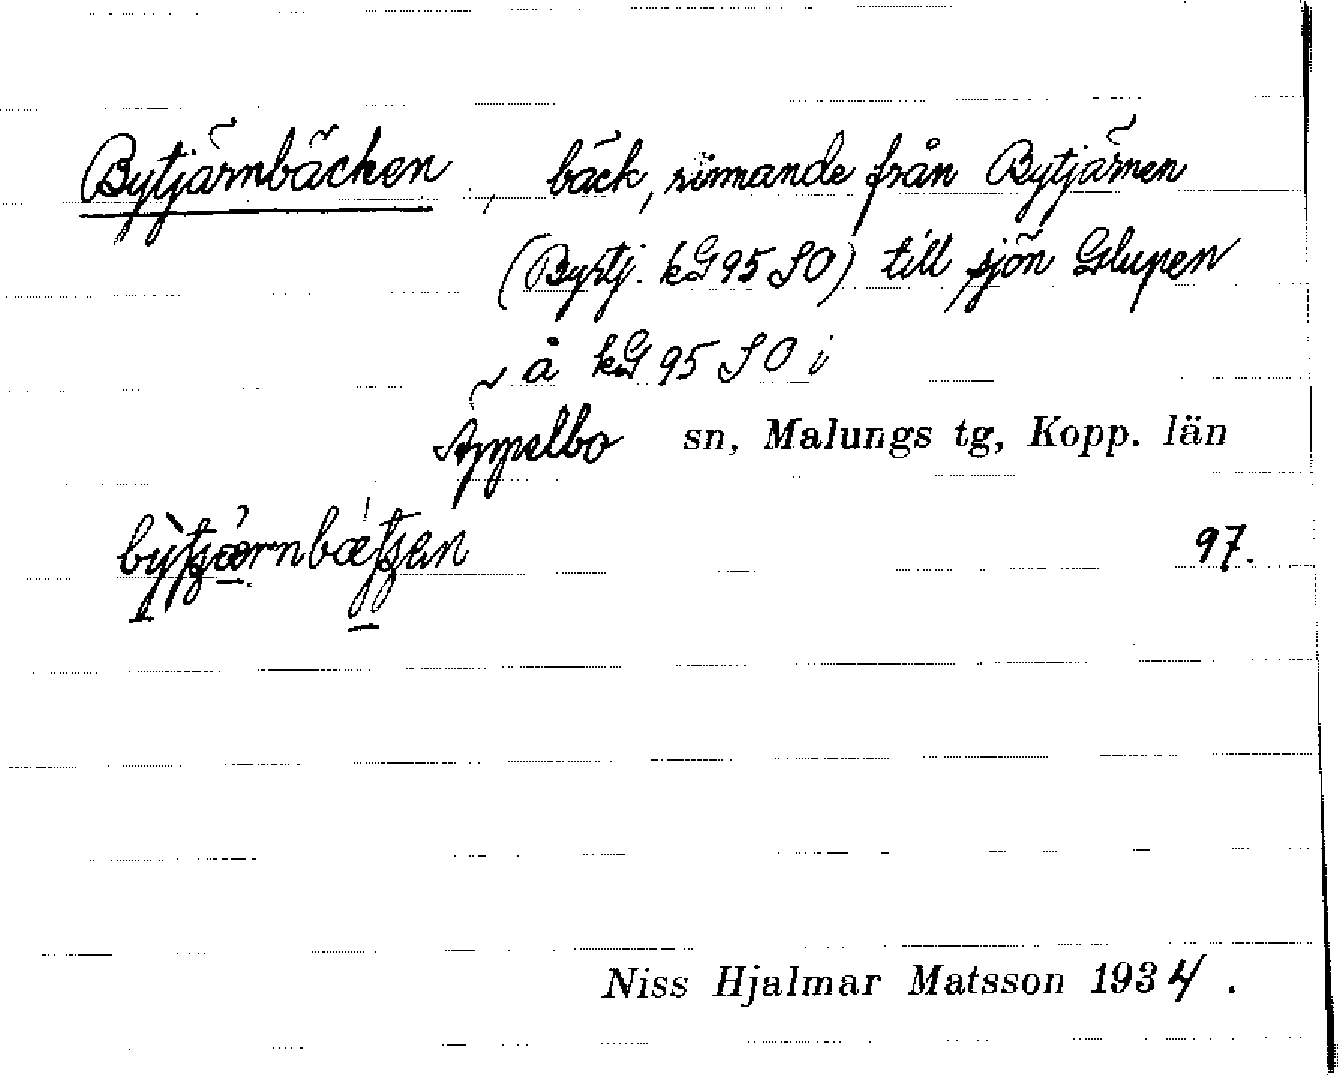 Bytjärnbäcken, bäck, rinnande från Bytjärnen
(Bystj. kG 95 SO) till sjön Glupen
å kG 95 SO i
Äppelbo sn, Malungs tg, Kopp. län
97.
Niss Hjalmar Matsson 1934.